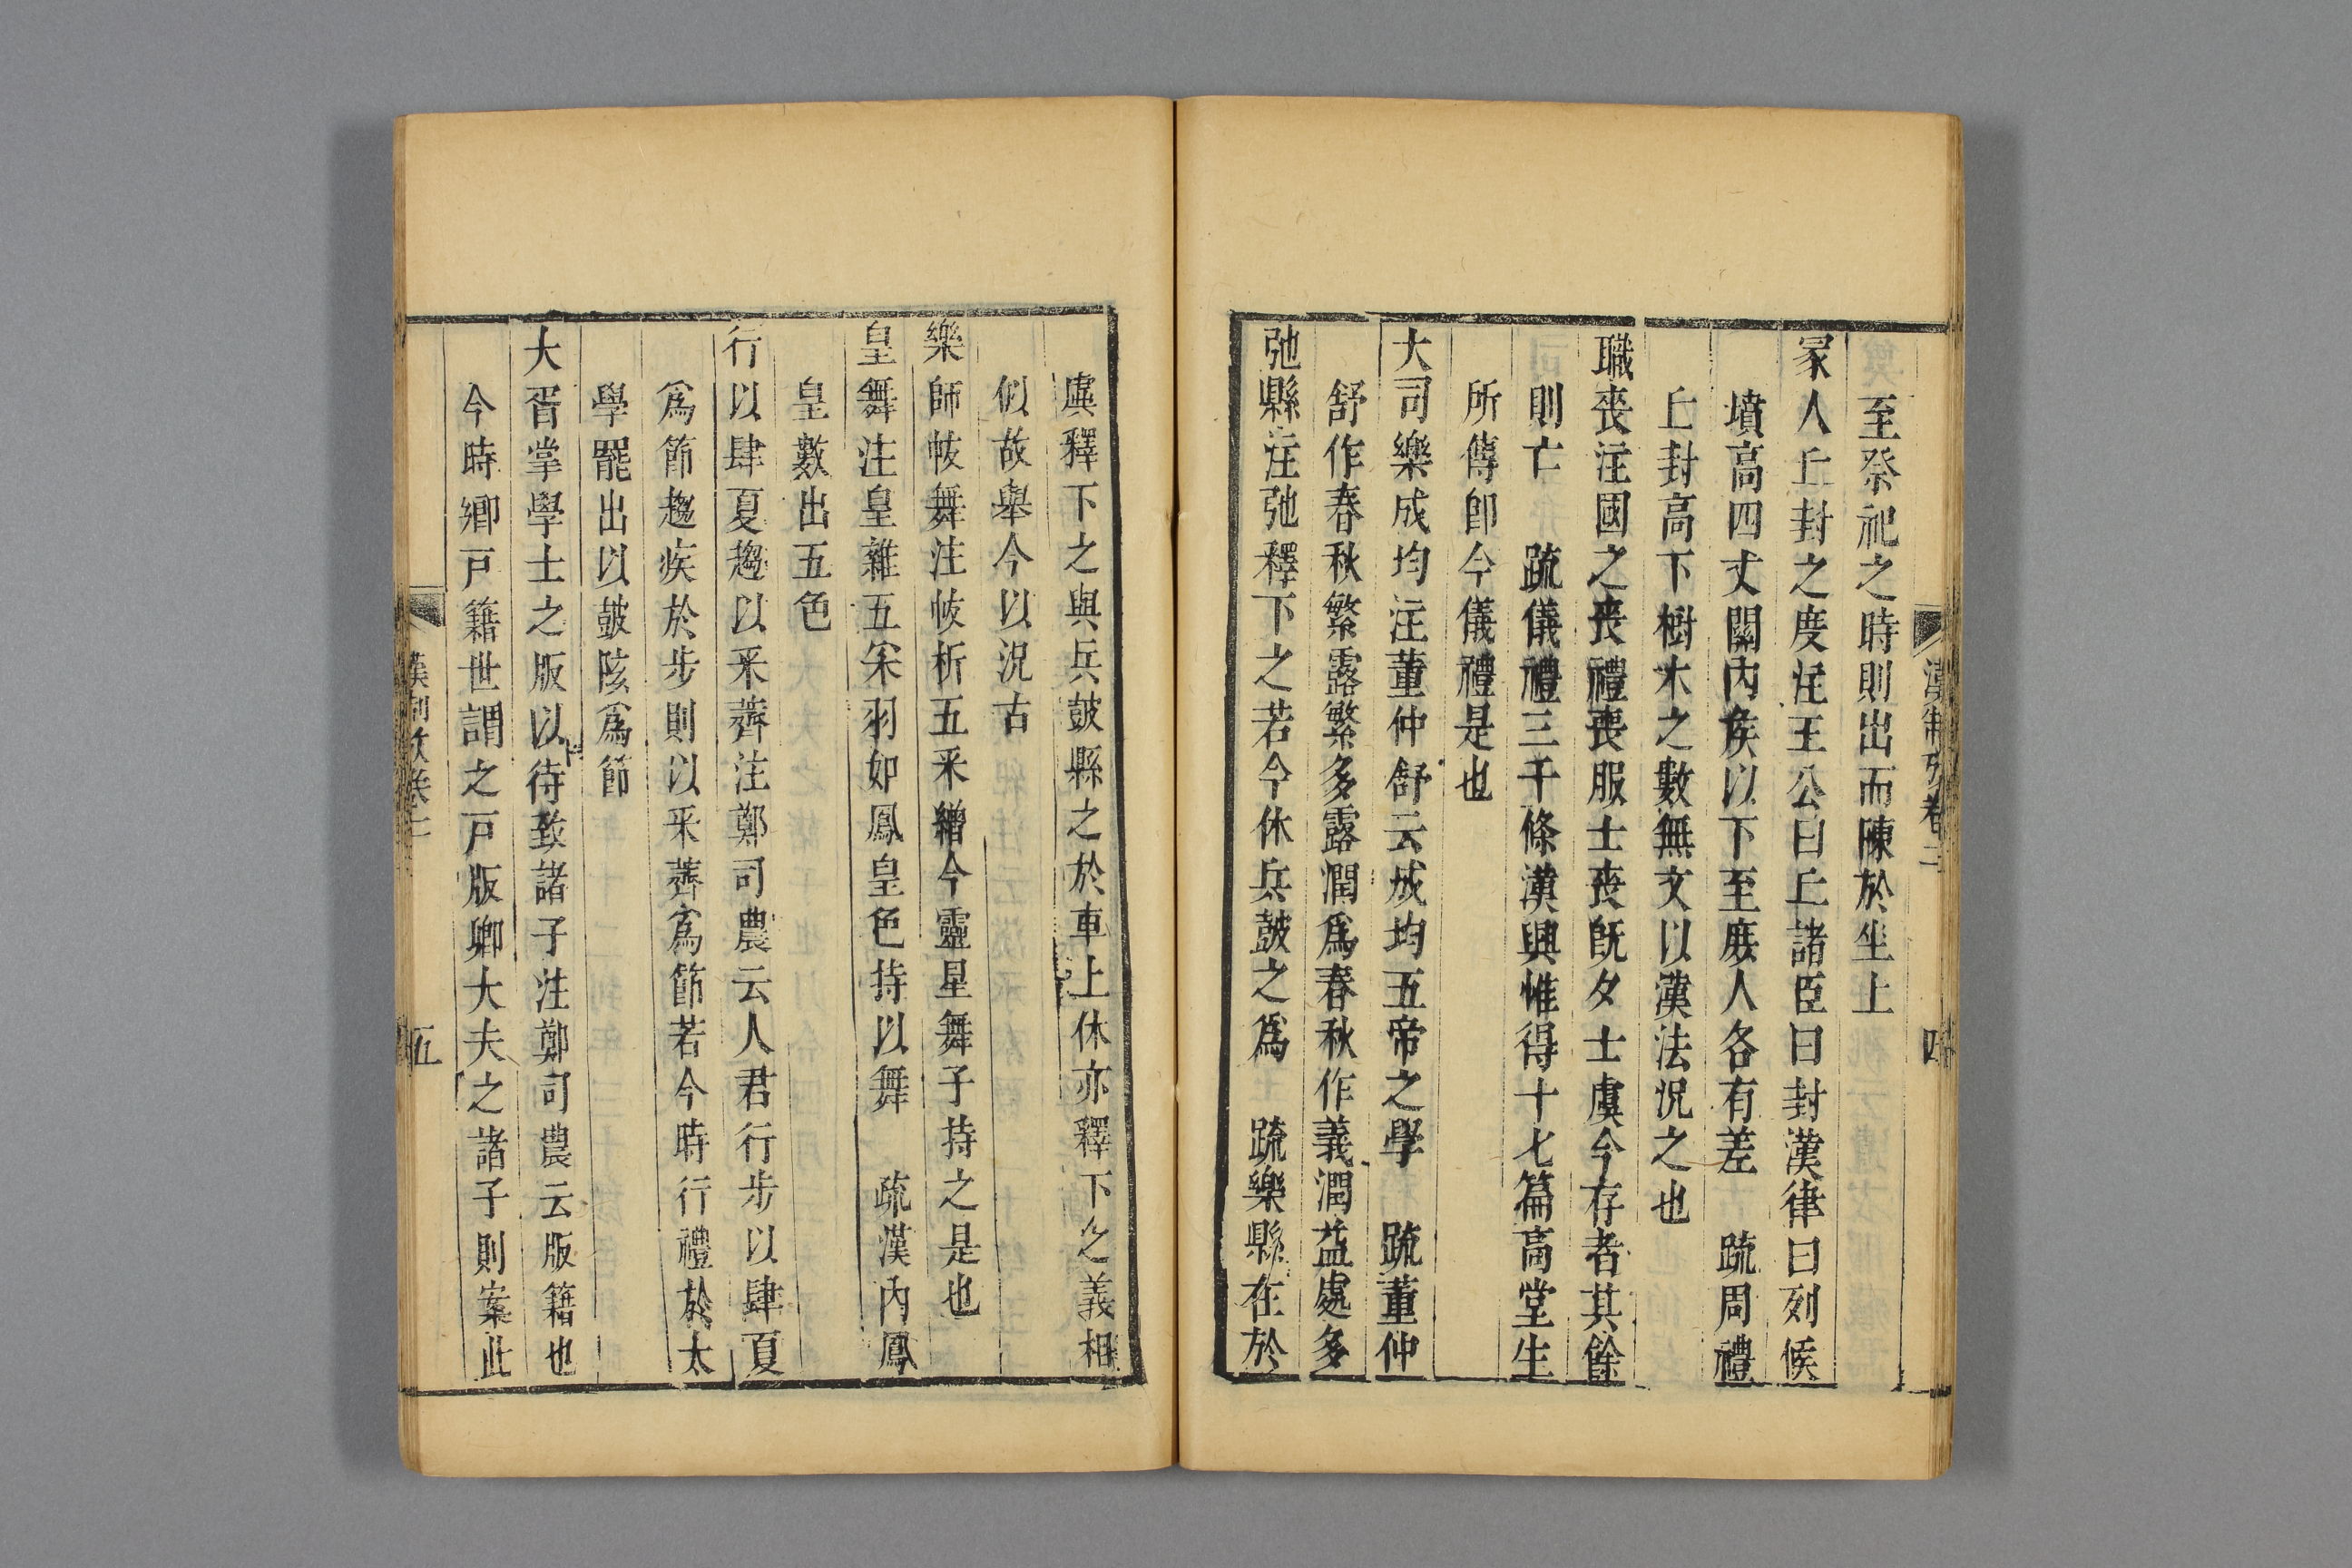 漢制攷卷二
四
至祭祀之時則出而陳於坐上
冢人丘封之度注王公曰丘諸臣曰封漢律曰列侯
墳高四丈關內侯以下至庶人各有差　疏周禮
丘封高下樹木之數無文以漢法況之也
職喪注國之喪禮喪服士喪旣夕士虞今存者其餘
則亡　疏儀禮三千條漢興惟得十七篇高堂生
所傳卽今儀禮是也
大司樂成均注董仲舒云成均五帝之學　疏董仲
舒作春秋繁露繁多露潤爲春秋作義潤益處多
弛縣注弛釋下之若今休兵鼓之爲　疏樂縣在於
虡釋下之與兵鼓縣之於車上休亦釋下之義相
似故舉今以況古
樂師帗舞注帗析五采繒今靈星舞子持之是也
皇舞注皇雜五采羽如鳳皇色持以舞　疏漢內鳳
皇數出五色
行以肆夏趨以采薺注鄭司農云人君行步以肆夏
爲節趨疾於步則以采薺爲節若今時行禮於太
學罷出以鼓陔爲節
大胥掌學士之版以待致諸子注鄭司農云版籍也
今時鄉戸籍世謂之戸版卿大夫之諸子則案此
漢制攷卷二
五